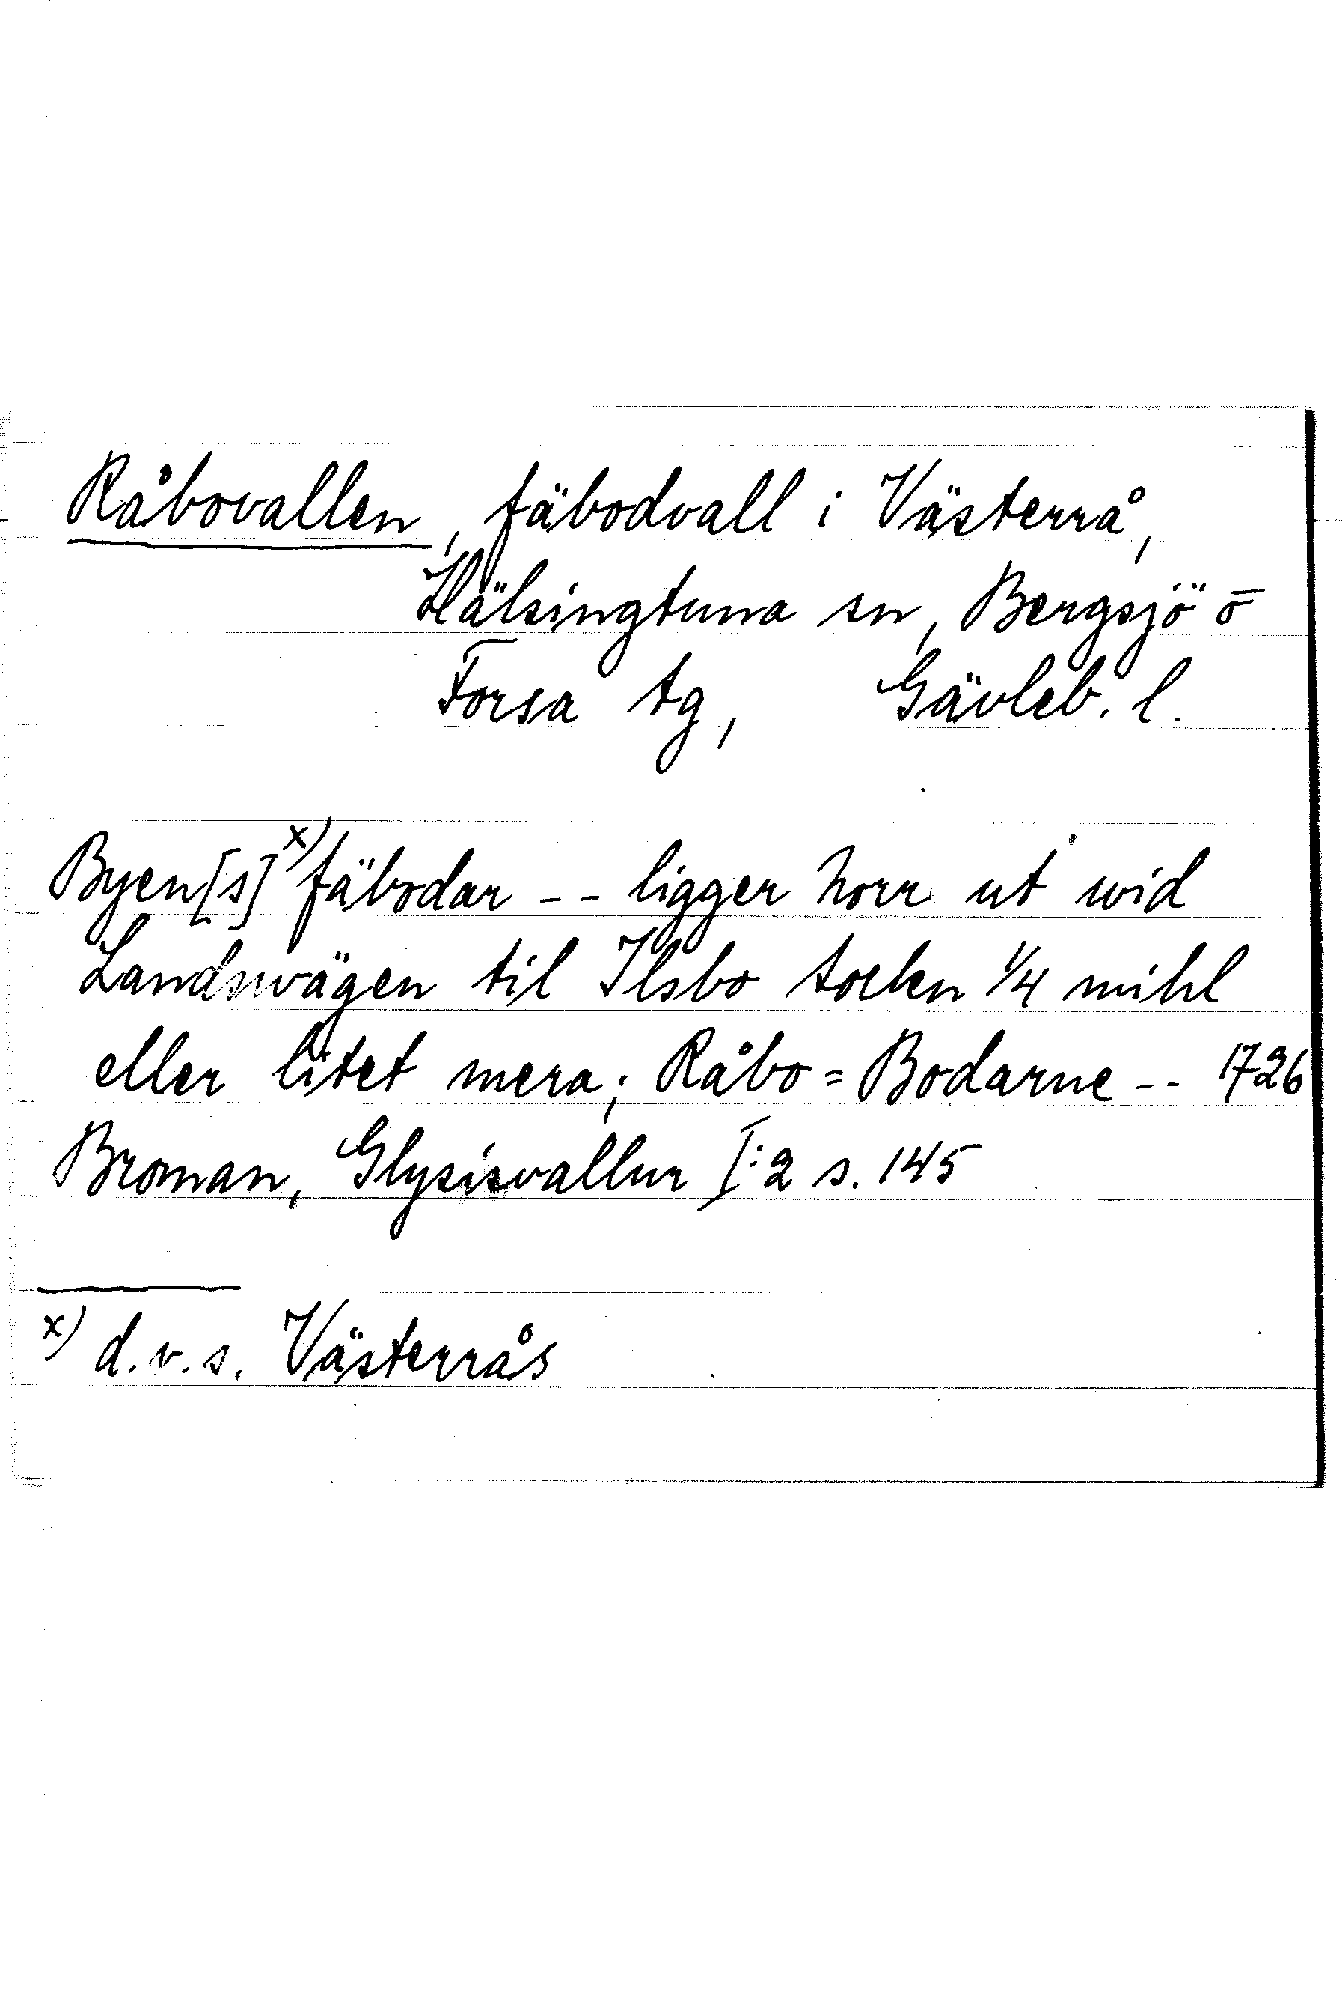 Råbovallen, fäbodvall i Västerrå,
Hälsingtuna sn, Bergsjö o
Forsa tg, Gävleb. l.
Byen[s] x) fäbodar -- ligger norr ut wid
Landswägen til Ilsbo socken 1/4 mihl
eller litet mera; Råbo=Bodarne -- 1726
Broman, Glysisvallur I:2 s. 145
x) d.v.s. Västerrås